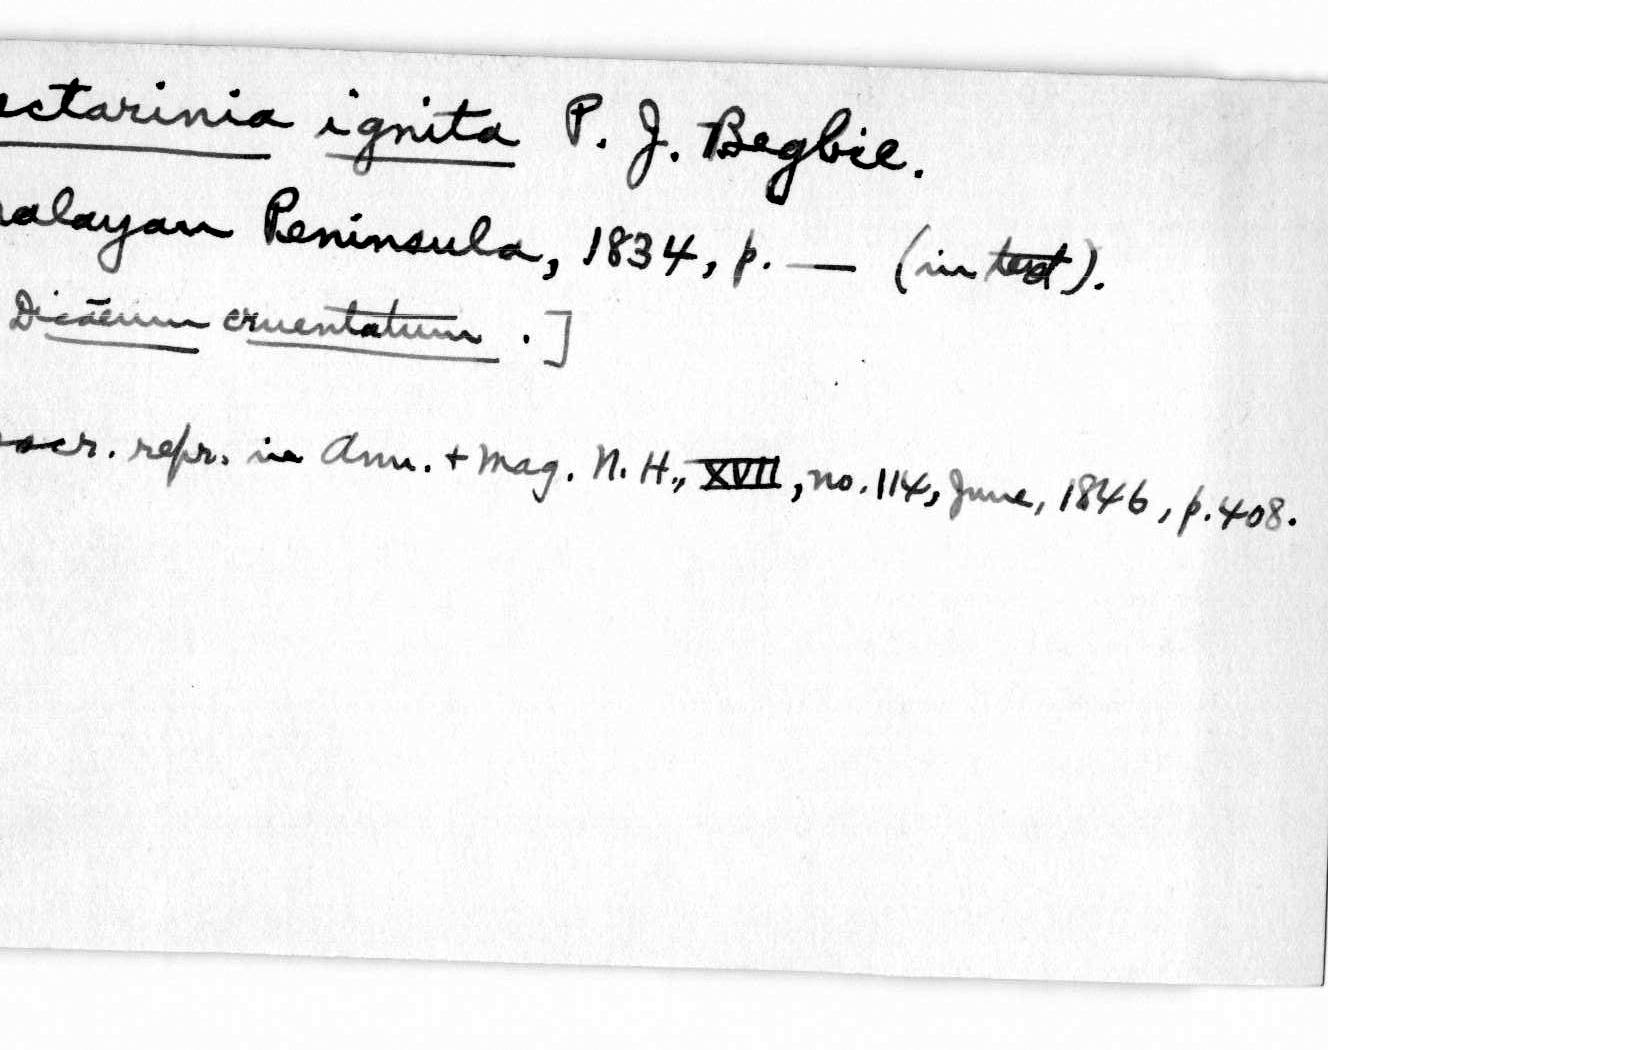 ectarinia ignita P. J. Begbie.
alayan Peninsula, 1834, p. — (in text).
Dicaeum cruentatum.]
scr. repr. in Ann. + Mag. N. H., XVII, no. 114, June, 1846, p. 408.